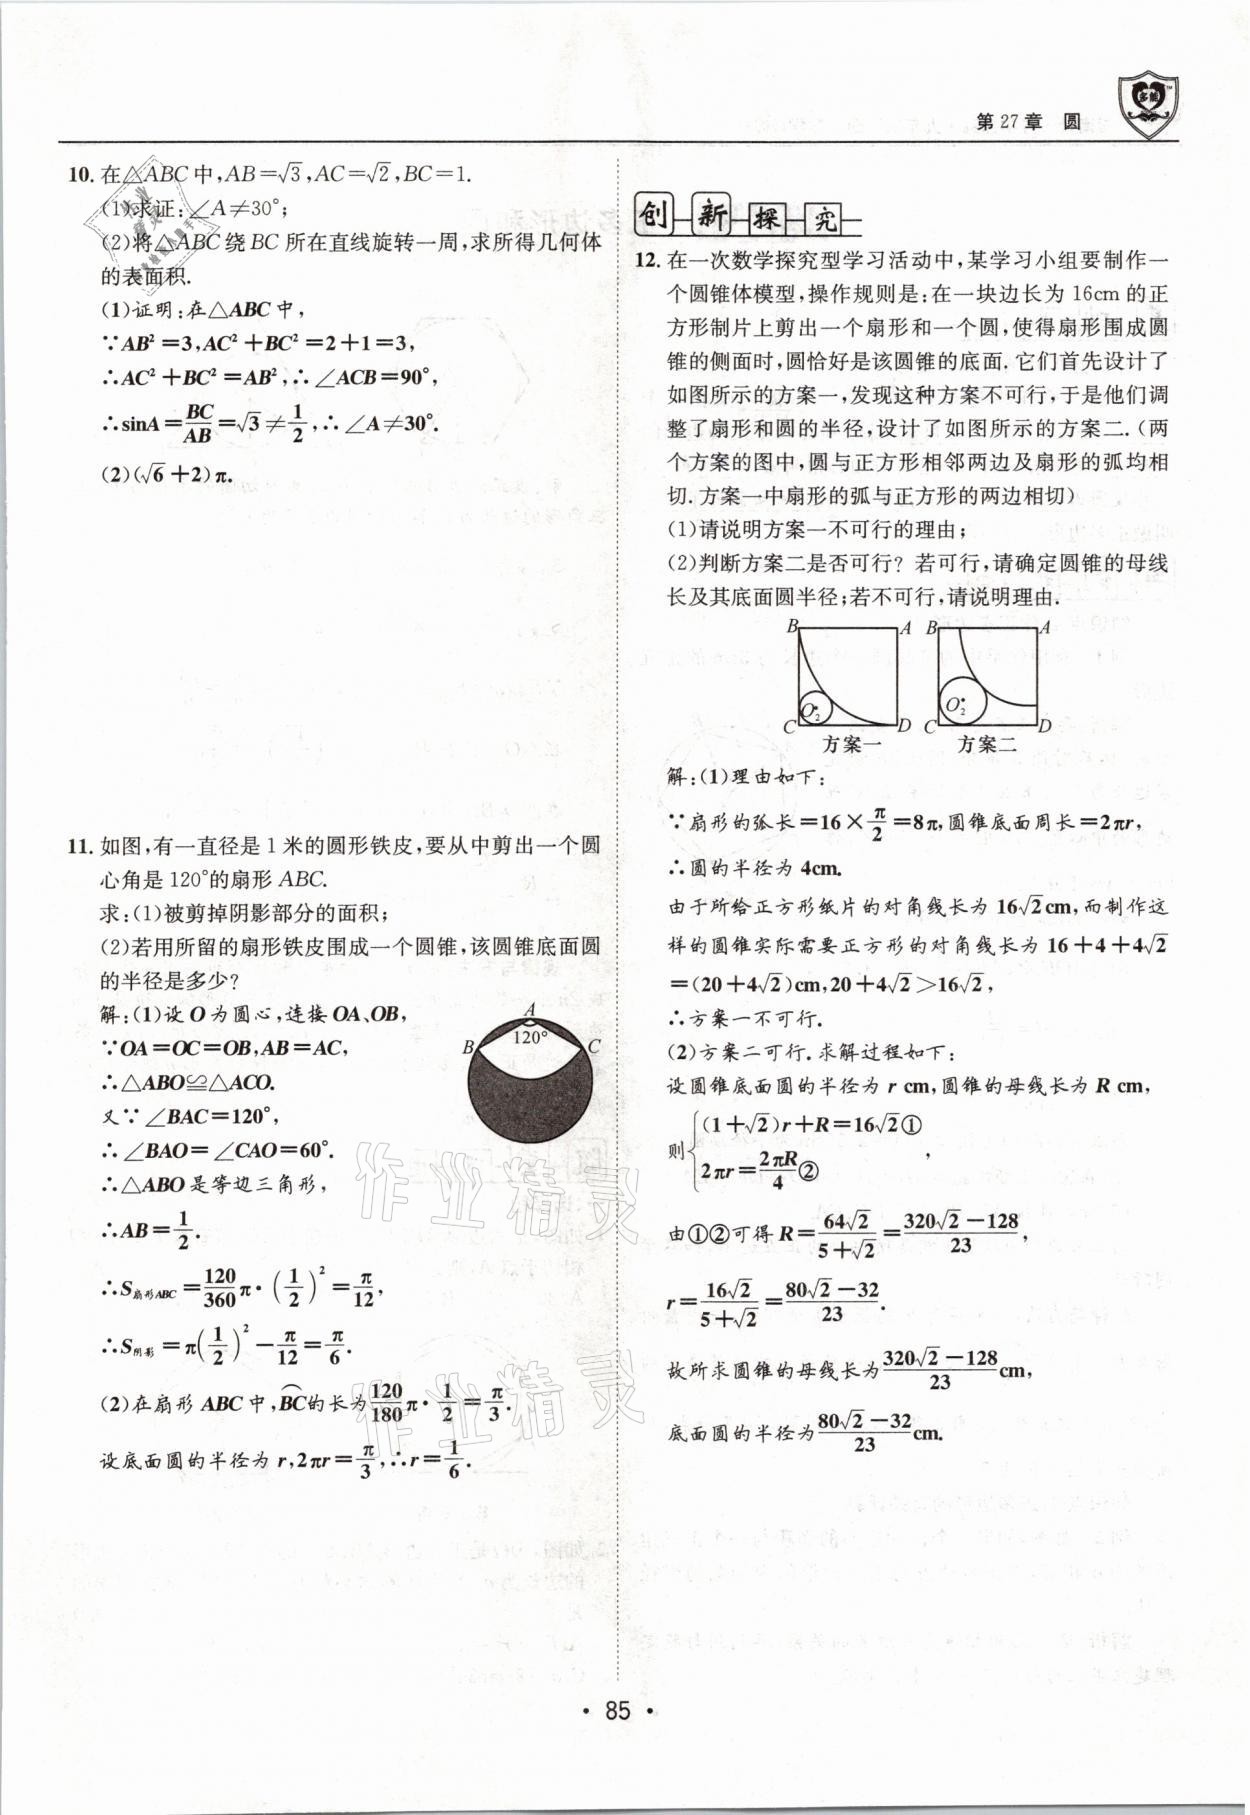 第27章 圆
10. 在△ABC中,AB=√3,AC=√2,BC=1.
(1)求证:∠A≠30°;
(2)将△ABC绕BC所在直线旋转一周,求所得几何体
的表面积.
(1)证明:在△ABC中,
∵AB²=3,AC²+BC²=2+1=3,
∴AC²+BC²=AB²,∴∠ACB=90°,
∴sinA=BC/AB=√3≠1/2,∴∠A≠30°.
(2)(√6+2)π.
11. 如图,有一直径是1米的圆形铁皮,要从中剪出一个圆
心角是120°的扇形ABC.
求:(1)被剪掉阴影部分的面积;
(2)若用所留的扇形铁皮围成一个圆锥,该圆锥底面圆
的半径是多少?
解:(1)设O为圆心,连接OA、OB,
∵OA=OC=OB,AB=AC,
∴△ABO≌△ACO.
又∵∠BAC=120°,
∴∠BAO=∠CAO=60°.
∴△ABO是等边三角形,
∴AB=1/2.
∴S扇形ABC=120/360π·(1/2)²=π/12,
∴S阴影=π(1/2)²-π/12=π/6.
(2)在扇形ABC中,BC的长为120/180π·1/2=π/3.
设底面圆的半径为r,2πr=π/3,∴r=1/6.
A
120°
B
C
创新探究
12. 在一次数学探究型学习活动中,某学习小组要制作一
个圆锥体模型,操作规则是:在一块边长为16cm的正
方形制片上剪出一个扇形和一个圆,使得扇形围成圆
锥的侧面时,圆恰好是该圆锥的底面.它们首先设计了
如图所示的方案一,发现这种方案不可行,于是他们调
整了扇形和圆的半径,设计了如图所示的方案二.(两
个方案的图中,圆与正方形相邻两边及扇形的弧均相
切.方案一中扇形的弧与正方形的两边相切)
(1)请说明方案一不可行的理由;
(2)判断方案二是否可行?若可行,请确定圆锥的母线
长及其底面圆半径;若不可行,请说明理由.
B A B A
O₂ O₂
C D C D
方案一 方案二
解:(1)理由如下:
∵扇形的弧长=16×π/2=8π,圆锥底面周长=2πr,
∴圆的半径为4cm.
由于所给正方形纸片的对角线长为16√2cm,而制作这
样的圆锥实际需要正方形的对角线长为16+4+4√2
=(20+4√2)cm,20+4√2>16√2,
∴方案一不可行.
(2)方案二可行.求解过程如下:
设圆锥底面圆的半径为r cm,圆锥的母线长为R cm,
则{(1+√2)r+R=16√2①
2πr=2πR/4②,
由①②可得R=64√2/(5+√2)=(320√2-128)/23,
r=16√2/(5+√2)=(80√2-32)/23.
故所求圆锥的母线长为(320√2-128)/23cm,
底面圆的半径为(80√2-32)/23cm.
作业精灵
作业精灵
· 85 ·